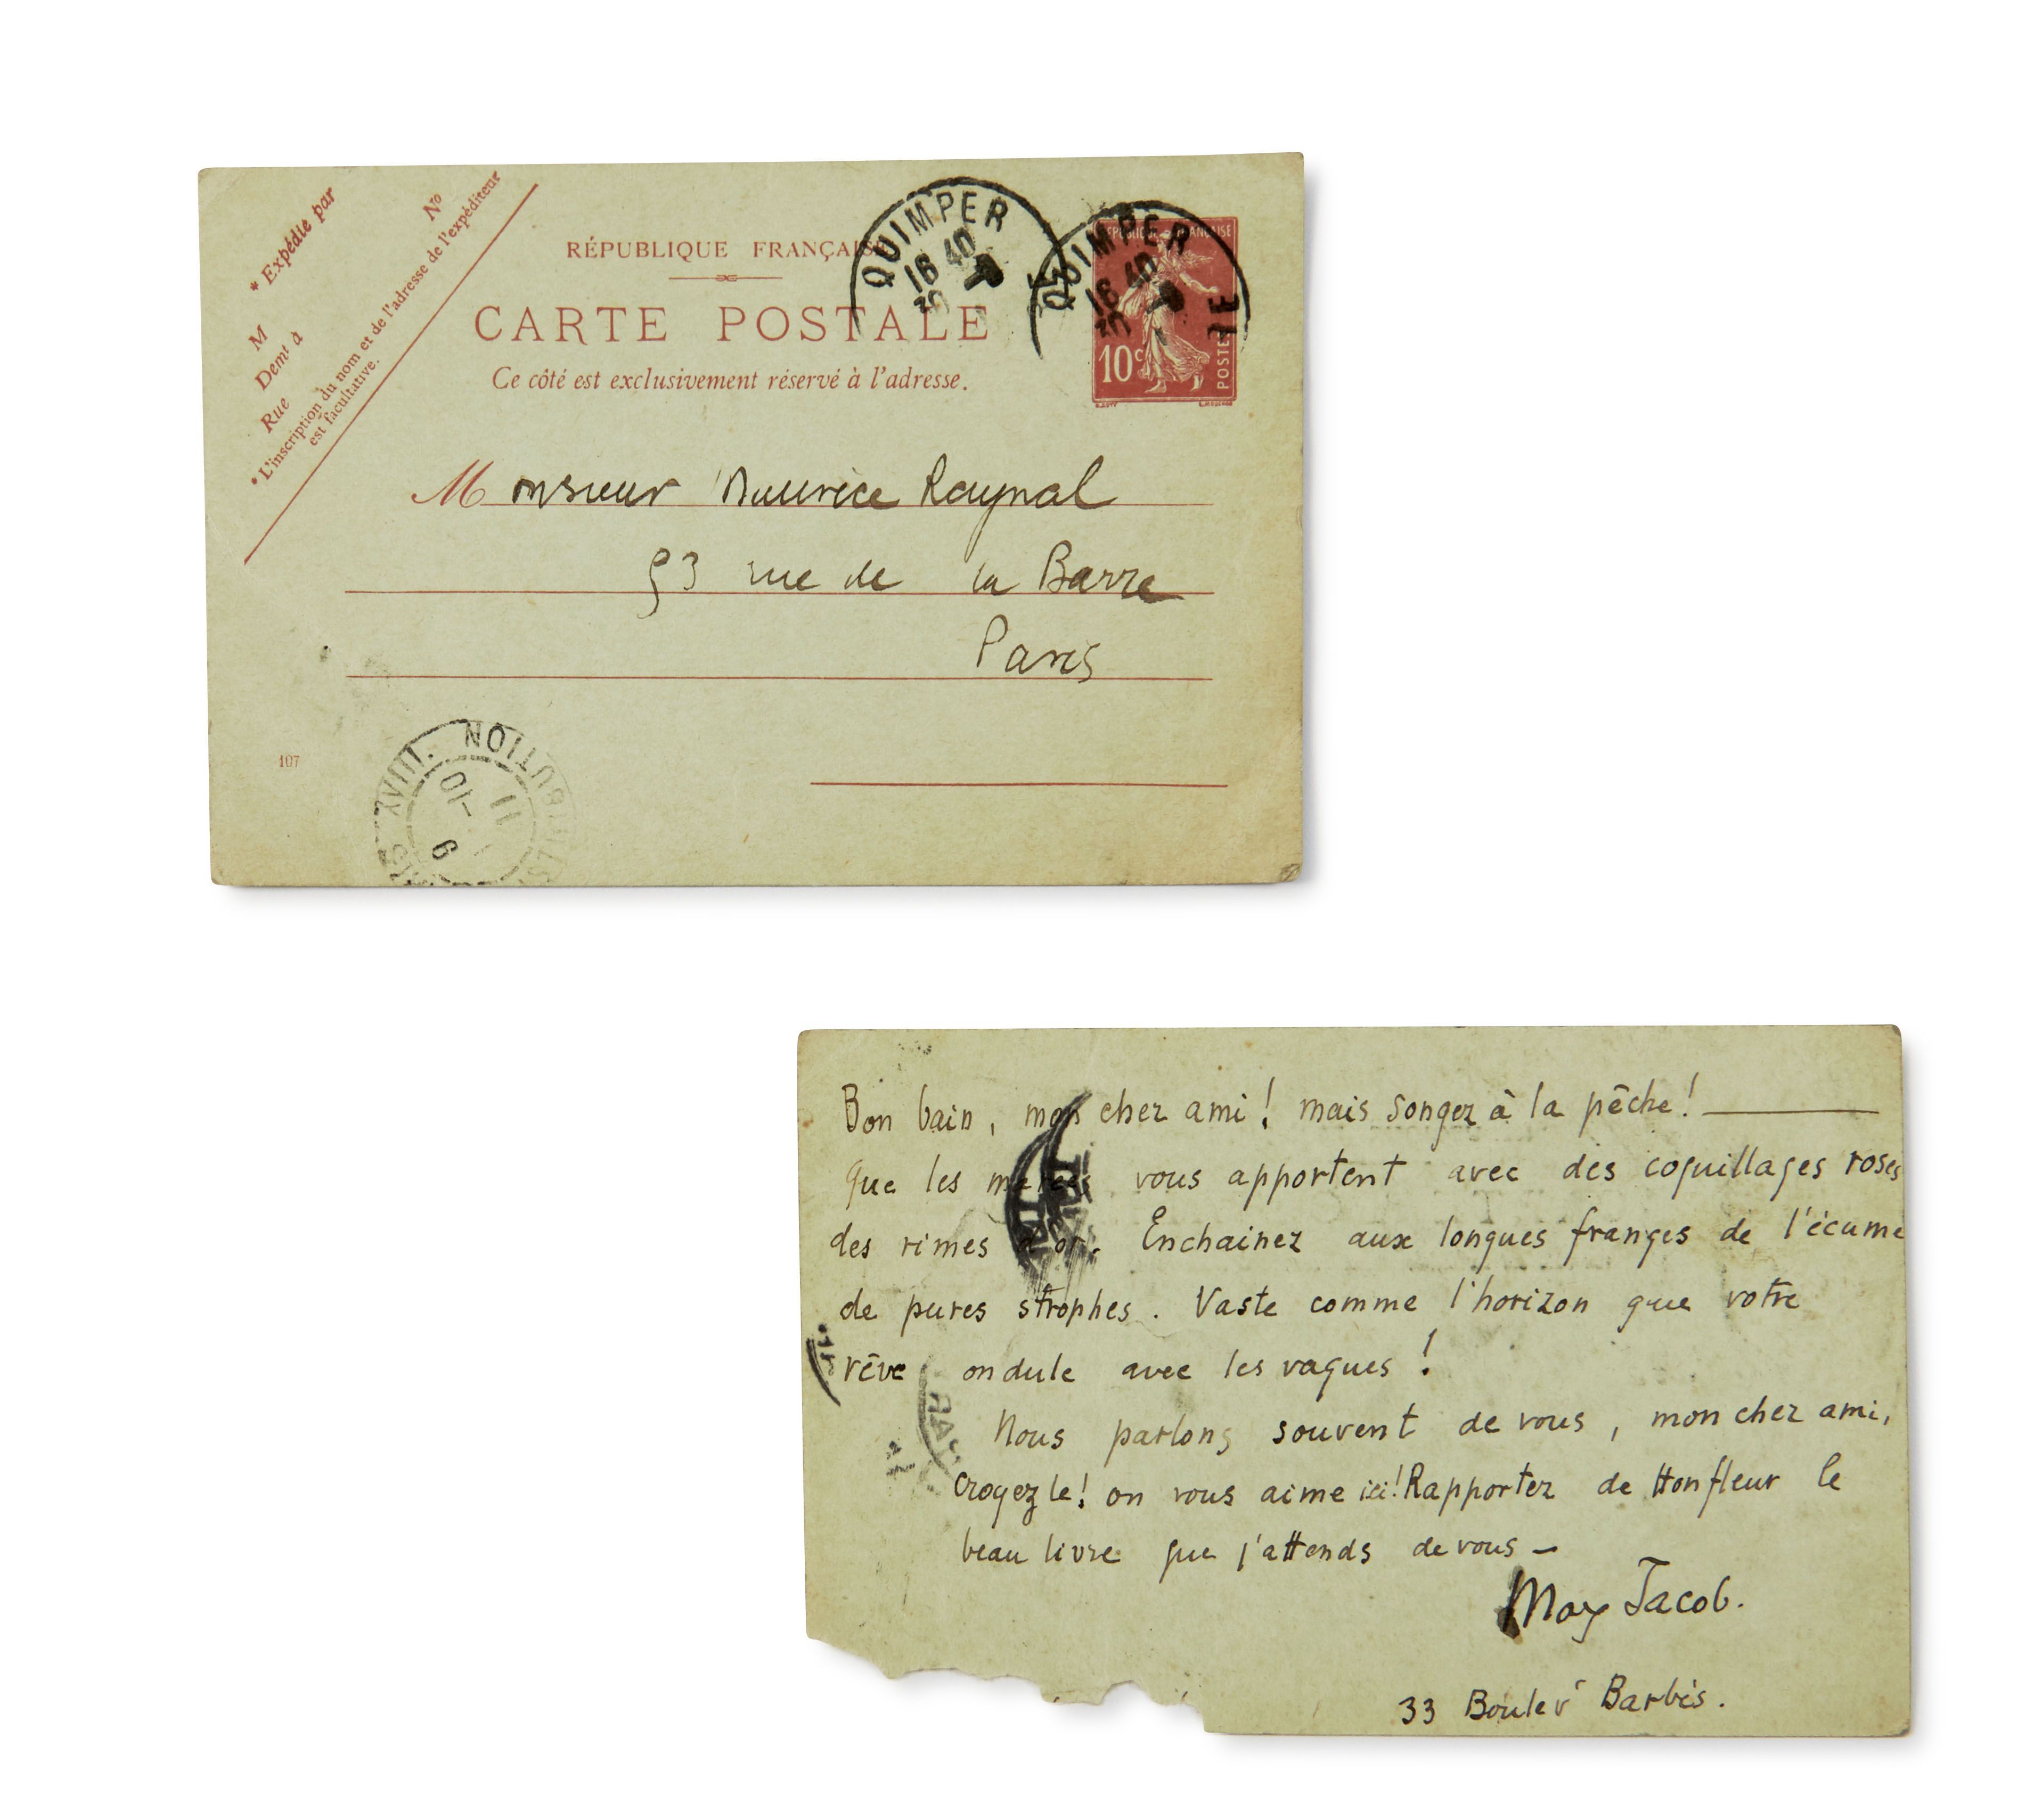 * Expédié par
M
Demt à
Rue
No
* L'inscription du nom et de l'adresse de l'expéditeur
est facultative.
RÉPUBLIQUE FRANÇAISE
CARTE POSTALE
Ce côté est exclusivement réservé à l'adresse.
QUIMPER
16 40
30
QUIMPER
16 40
30
RÉPUBLIQUE FRANÇAISE
10c
POSTES
Monsieur Maurice Raynal
53 rue de la Barre
Paris
107
XVIII. DISTRIBUTION
11
10
9
Bon bain, mon cher ami! mais songez à la pêche!
que les marées vous apportent avec des coquillages roses
des rimes d'or. Enchainez aux longues franges de l'écume
de pures strophes. Vaste comme l'horizon que votre
rêve ondule avec les vagues!
Nous parlons souvent de vous, mon cher ami,
croyez le! on vous aime ici! Rapportez de Honfleur le
beau livre que j'attends de vous —
Max Jacob.
33 Boulev Barbès.